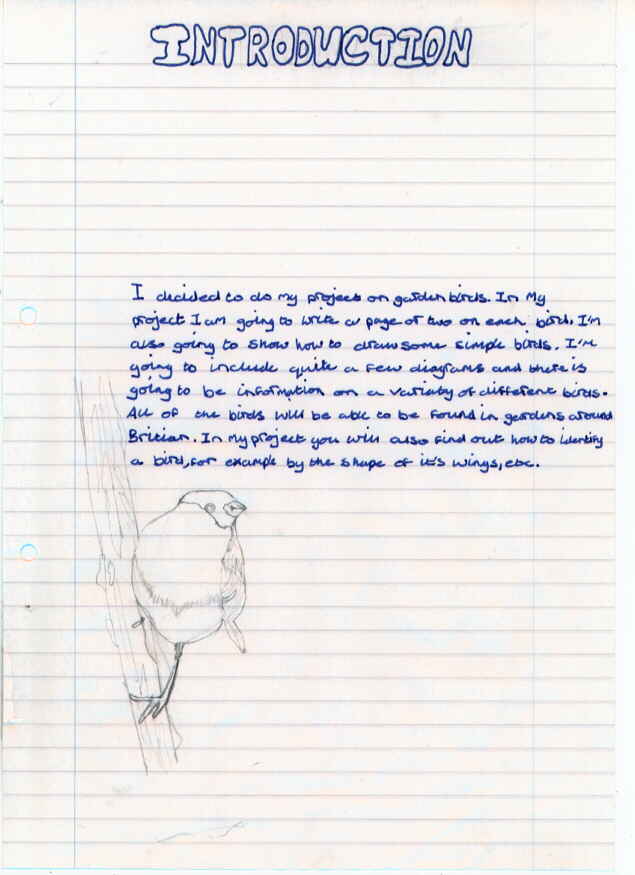 INTRODUCTION
I decided to do my project on garden birds. In My
project I am going to write a page or two on each bird. I'm
also going to show how to draw some simple birds. I'm
going to include quite a few diagrams and there is
going to be information on a variaty of different birds.
All of the birds will be able to be found in gardens around
Britian. In my project you will also find out how to identify
a bird, for example by the shape of it's wings, etc.